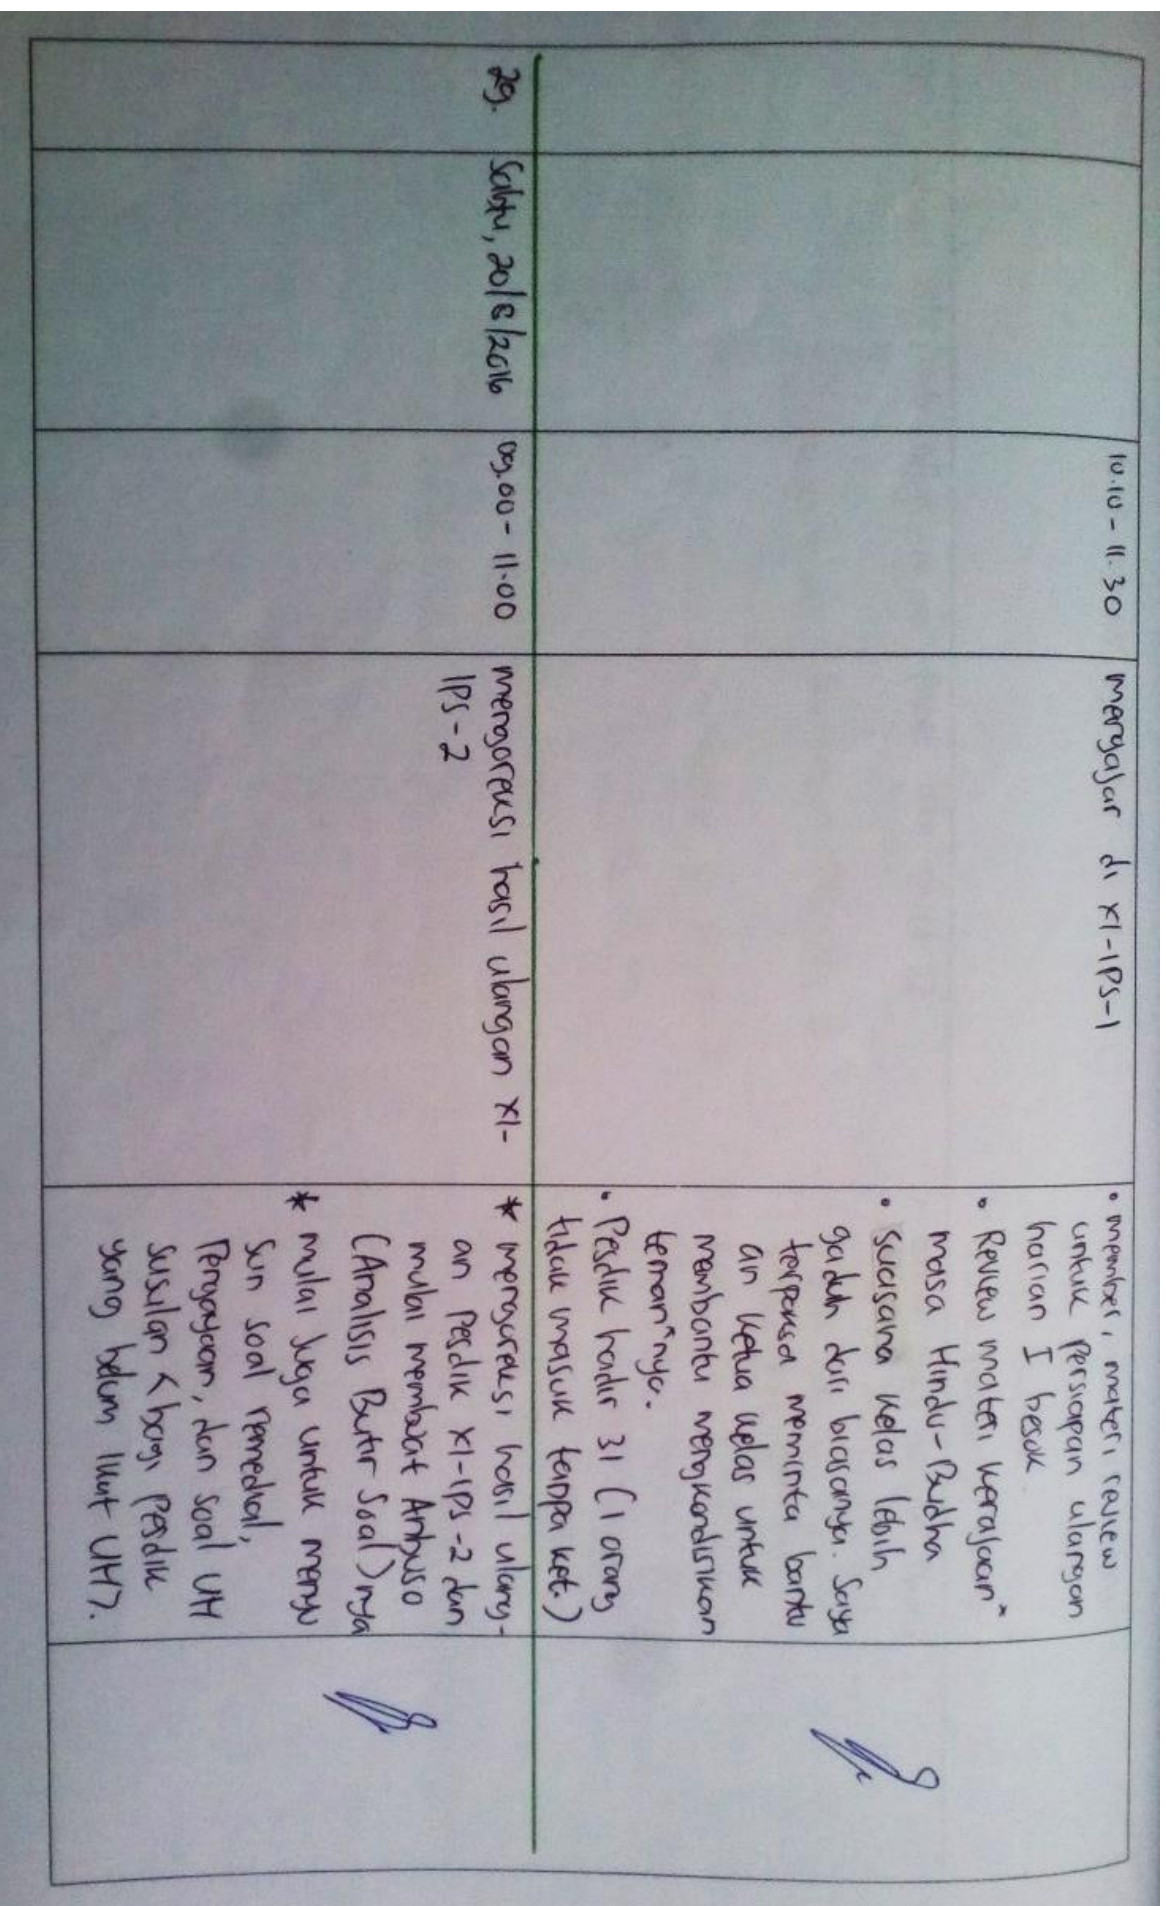 10.10 - 11.30
mengajar di XI-IPS-1
• memberi materi review
untuk persiapan ulangan
harian I besok.
• Review materi kerajaan"
masa Hindu-Budha
• suasana kelas lebih
gaduh dari biasanya. Saya
terpaksa meminta bantu
an ketua kelas untuk
membantu mengkondisikan
teman"nya.
• Pesdik hadir 31 (1 orang
tidak masuk tanpa ket.)
29.
Sabtu, 20/8/2016
09.00 - 11.00
mengoreksi hasil ulangan XI-
IPS-2
* mengoreksi hasil ulang-
an Pesdik XI-IPS-2 dan
mulai membuat Anbuso
(Analisis Butir Soal)nya
* mulai juga untuk menyu
sun soal remedial,
Pengayaan, dan soal UH
susulan < bagi Pesdik
yang belum ikut UH>.